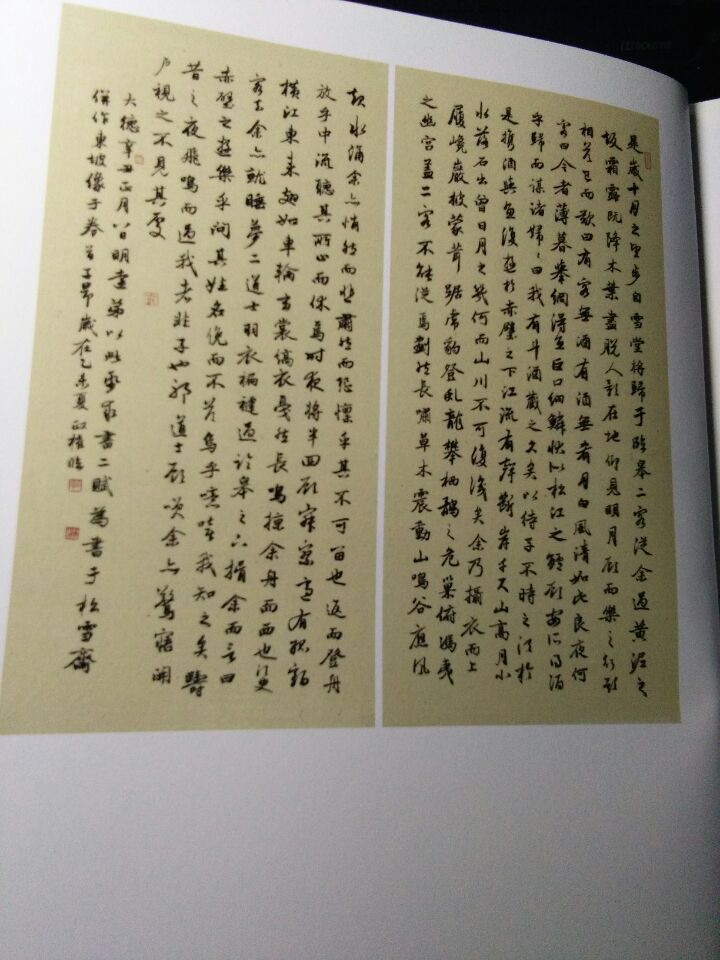 是歲十月之望步自雪堂將歸于臨皋二客從余過黃泥之
坂霜露既降木葉盡脫人影在地仰見明月顧而樂之行歌
相答已而歎曰有客無酒有酒無肴月白風清如此良夜何
客曰今者薄暮舉網得魚巨口細鱗狀似松江之鱸顧安所得酒
乎歸而謀諸婦婦曰我有斗酒藏之久矣以待子不時之須於
是攜酒與魚復遊於赤壁之下江流有聲斷岸千尺山高月小
水落石出曾日月之幾何而山川不可復識矣余乃攝衣而上
履巉巖披蒙茸踞虎豹登虬龍攀栖鶻之危巢俯馮夷
之幽宮蓋二客不能從焉劃然長嘯草木震動山鳴谷應風
起水涌余亦悄然而悲肅然而恐懍乎其不可留也返而登舟
放乎中流聽其所止而休焉時夜將半四顧寂寥適有孤鶴
橫江東來翅如車輪玄裳縞衣戛然長鳴掠余舟而西也須臾
客去余亦就睡夢二道士羽衣翩躚過臨皋之下揖余而言曰
赤壁之遊樂乎問其姓名俛而不答嗚乎噫嘻我知之矣疇
昔之夜飛鳴而過我者非子也邪道士顧笑余亦驚寤開
戶視之不見其處
大德辛丑正月八日明遠弟以此紙求書二賦為書于松雪齋
併作東坡像于卷首子昂歲在乙未夏臨